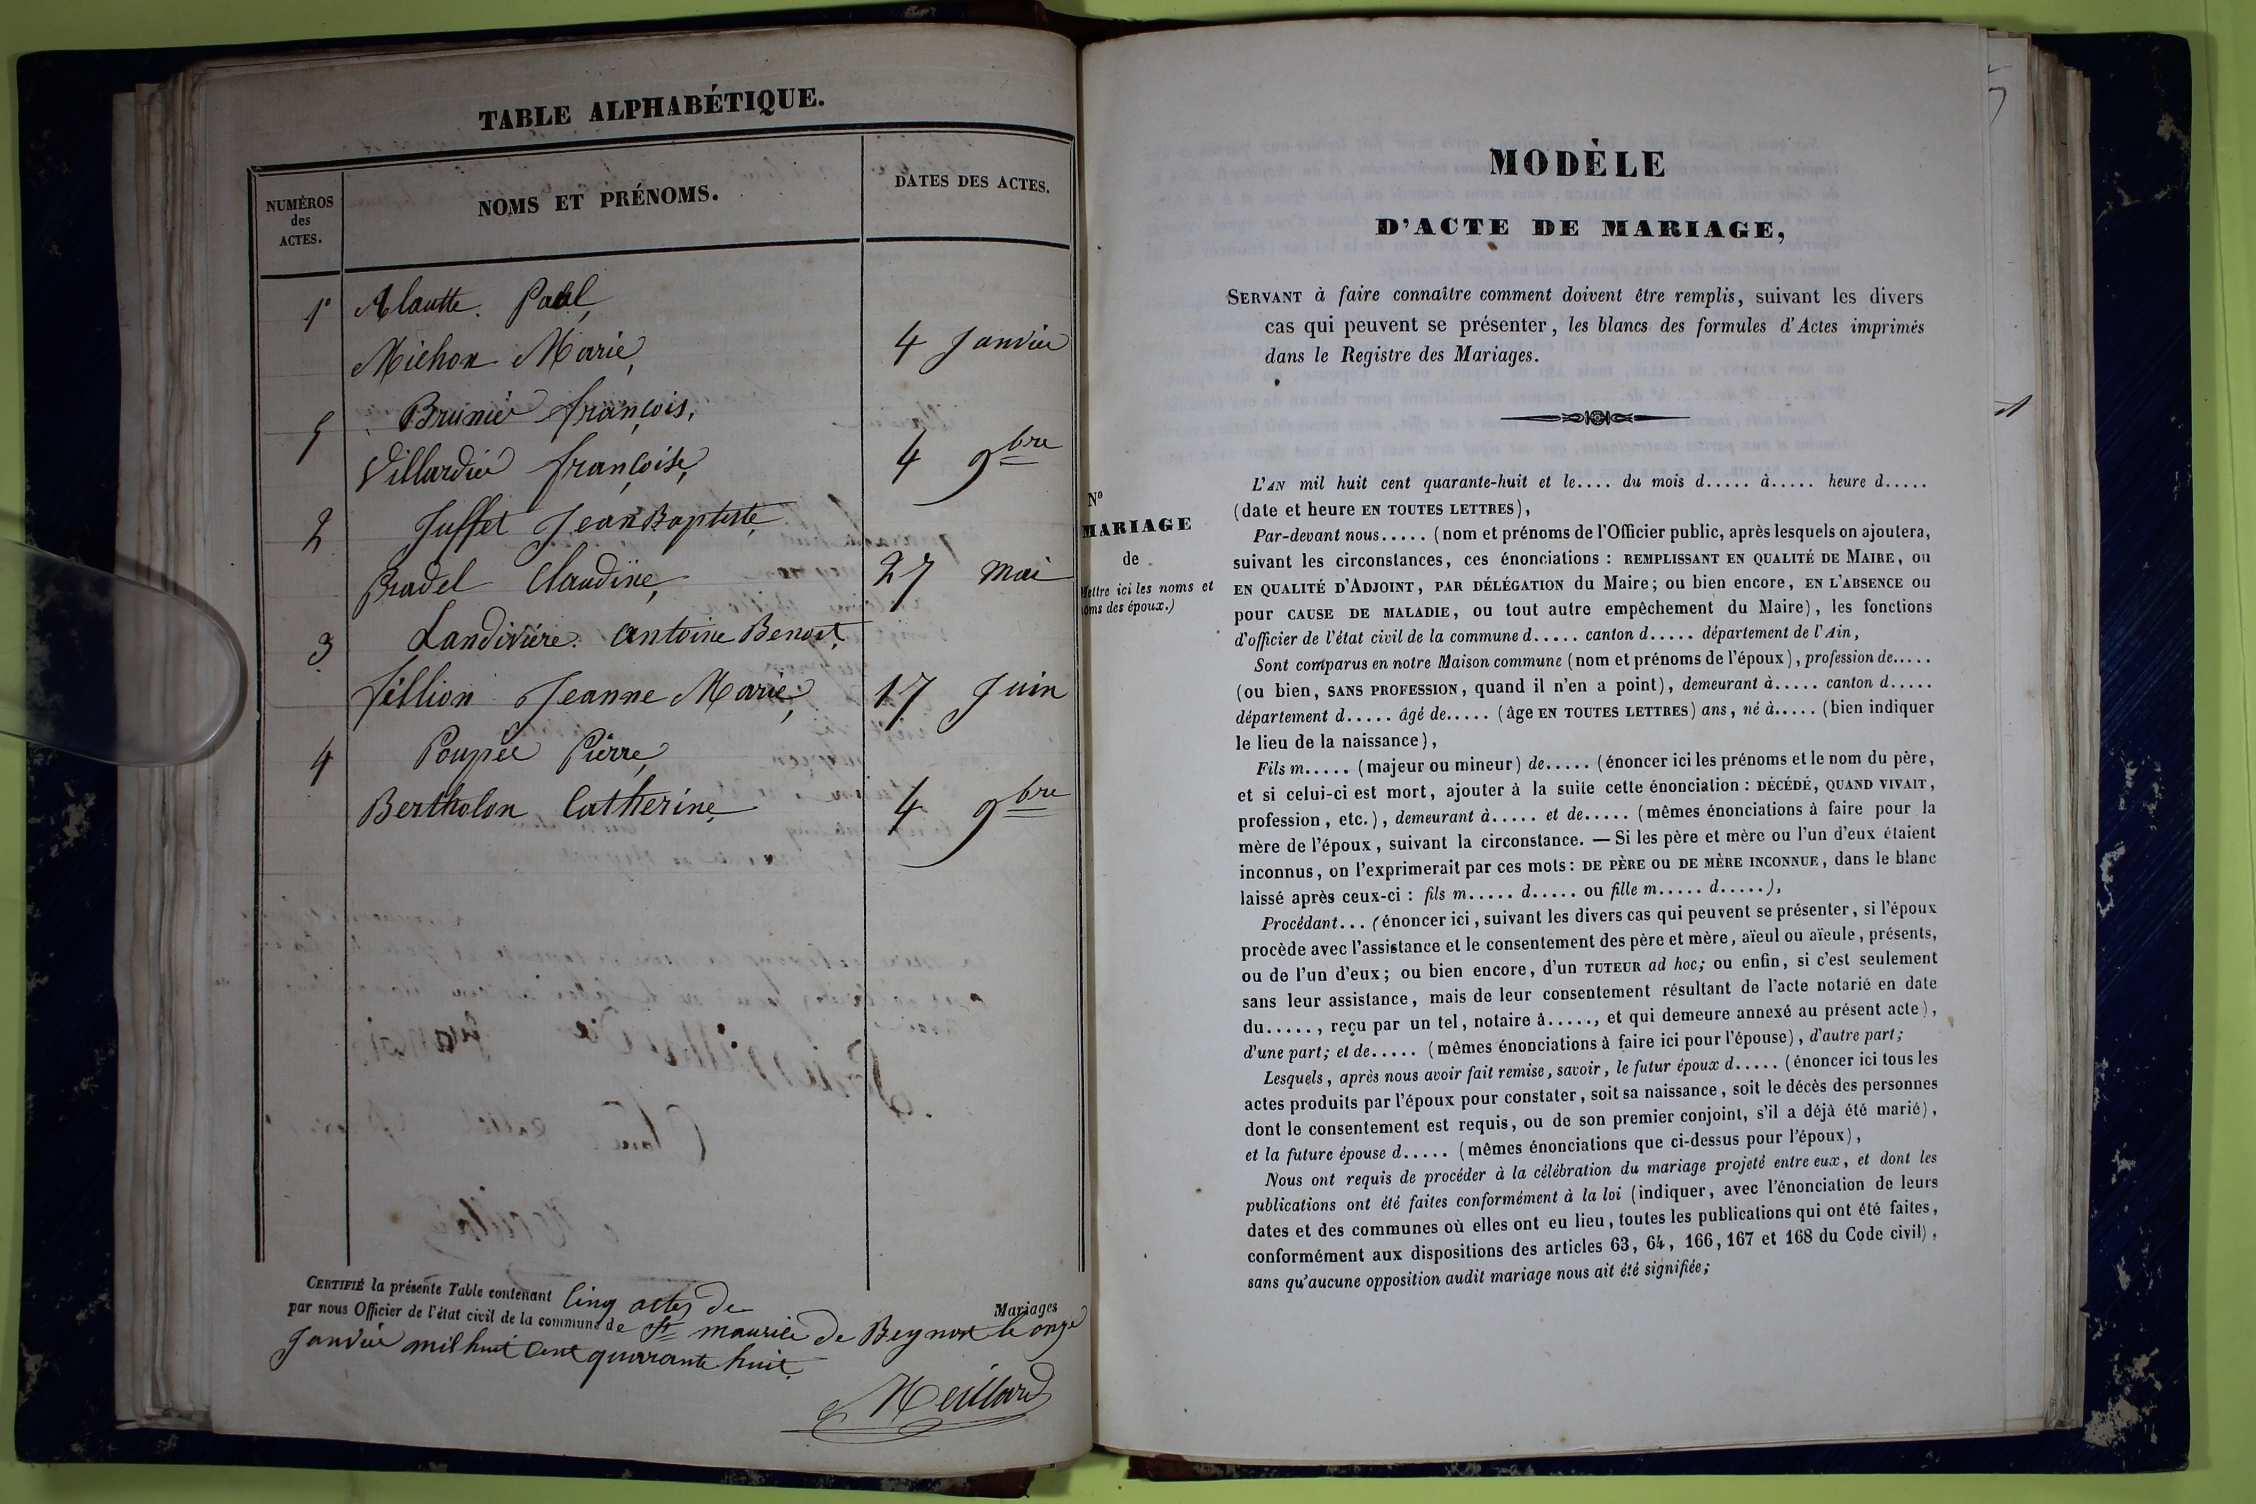 TABLE ALPHABÉTIQUE.
NUMÉROS des ACTES.
NOMS ET PRÉNOMS.
DATES DES ACTES.
1° Alautte. Paul,
Michon Marie, 4 Janvier
5 Brunier françois,
Villardier françoise, 4 9bre
2 Juffet Jean Baptiste,
Pradel Claudine, 27 Mai
3 Landivière. antoine Benoit,
fillion Jeanne Marie, 17 Juin
4 Poupée Pierre,
Bertholon Catherine, 4 9bre
CERTIFIÉ la présente Table contenant Cinq actes de Mariages
par nous Officier de l'état civil de la commune de St maurice de Beynost le onze
Janvier mil huit Cent quarante huit.
Meillard
MODÈLE
D'ACTE DE MARIAGE,
SERVANT à faire connaître comment doivent être remplis, suivant les divers
cas qui peuvent se présenter, les blancs des formules d'Actes imprimés
dans le Registre des Mariages.
N°
MARIAGE
de
Mettre ici les noms et
oms des époux.)
L'AN mil huit cent quarante-huit et le.... du mois d..... à..... heure d.....
(date et heure EN TOUTES LETTRES),
Par-devant nous..... (nom et prénoms de l'Officier public, après lesquels on ajoutera,
suivant les circonstances, ces énonciations : REMPLISSANT EN QUALITÉ DE MAIRE, ou
EN QUALITÉ D'ADJOINT, PAR DÉLÉGATION du Maire; ou bien encore, EN L'ABSENCE ou
pour CAUSE DE MALADIE, ou tout autre empêchement du Maire), les fonctions
d'officier de l'état civil de la commune d..... canton d..... département de l'Ain,
Sont comparus en notre Maison commune (nom et prénoms de l'époux), profession de.....
(ou bien, SANS PROFESSION, quand il n'en a point), demeurant à..... canton d.....
département d..... âgé de..... (âge EN TOUTES LETTRES) ans, né à..... (bien indiquer
le lieu de la naissance),
Fils m..... (majeur ou mineur) de..... (énoncer ici les prénoms et le nom du père,
et si celui-ci est mort, ajouter à la suite cette énonciation : DÉCÉDÉ, QUAND VIVAIT,
profession, etc.), demeurant à..... et de..... (mêmes énonciations à faire pour la
mère de l'époux, suivant la circonstance. — Si les père et mère ou l'un d'eux étaient
inconnus, on l'exprimerait par ces mots : DE PÈRE ou DE MÈRE INCONNUE, dans le blanc
laissé après ceux-ci : fils m..... d..... ou fille m..... d.....),
Procédant... (énoncer ici, suivant les divers cas qui peuvent se présenter, si l'époux
procède avec l'assistance et le consentement des père et mère, aïeul ou aïeule, présents,
ou de l'un d'eux; ou bien encore, d'un TUTEUR ad hoc; ou enfin, si c'est seulement
sans leur assistance, mais de leur consentement résultant de l'acte notarié en date
du....., reçu par un tel, notaire à....., et qui demeure annexé au présent acte),
d'une part; et de..... (mêmes énonciations à faire ici pour l'épouse), d'autre part;
Lesquels, après nous avoir fait remise, savoir, le futur époux d..... (énoncer ici tous les
actes produits par l'époux pour constater, soit sa naissance, soit le décès des personnes
dont le consentement est requis, ou de son premier conjoint, s'il a déjà été marié),
et la future épouse d..... (mêmes énonciations que ci-dessus pour l'époux),
Nous ont requis de procéder à la célébration du mariage projeté entre eux, et dont les
publications ont été faites conformément à la loi (indiquer, avec l'énonciation de leurs
dates et des communes où elles ont eu lieu, toutes les publications qui ont été faites,
conformément aux dispositions des articles 63, 64, 166, 167 et 168 du Code civil),
sans qu'aucune opposition audit mariage nous ait été signifiée;